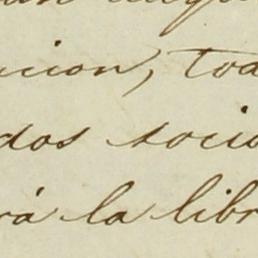 icion, toda
dos socio
rá la libr